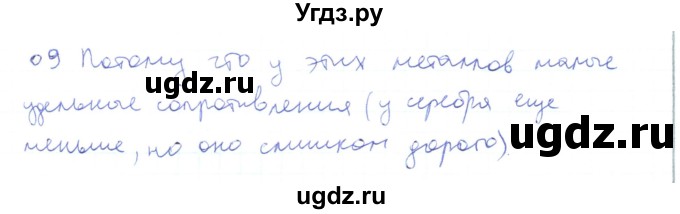 Угдз.ру
09 Потому что у этих металлов малые
угдз.ру
удельные сопротивления (у серебра еще
меньше, но оно слишком дорого).
угдз.ру
ugdz.ru
ugdz.ru